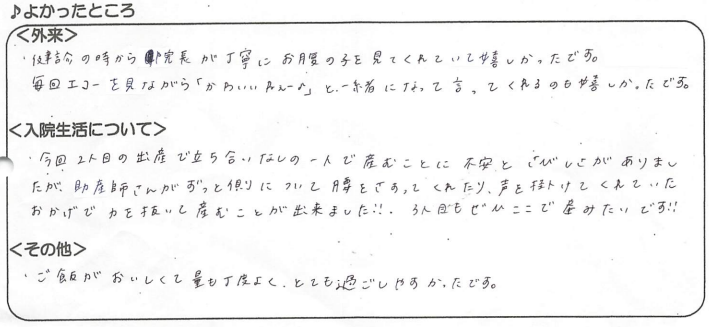 ♪よかったところ
<外来>
・健診の時から院長が丁寧にお腹の子を見てくれていて嬉しかったです。
毎回エコーを見ながら「かわいいねぇ〜♪」と一緒になって言ってくれるのも嬉しかったです。
<入院生活について>
・今回2人目の出産で立ち合いなしの一人で産むことに不安とさびしさがありまし
たが、助産師さんがずっと側りについて腰をさすってくれたり、声を掛けてくれていた
おかげで力を抜いて産むことが出来ました!!. 3人目もぜひここで産みたいです!!
<その他>
・ご飯がおいしくて量も丁度よく、とても過ごしやすかったです。